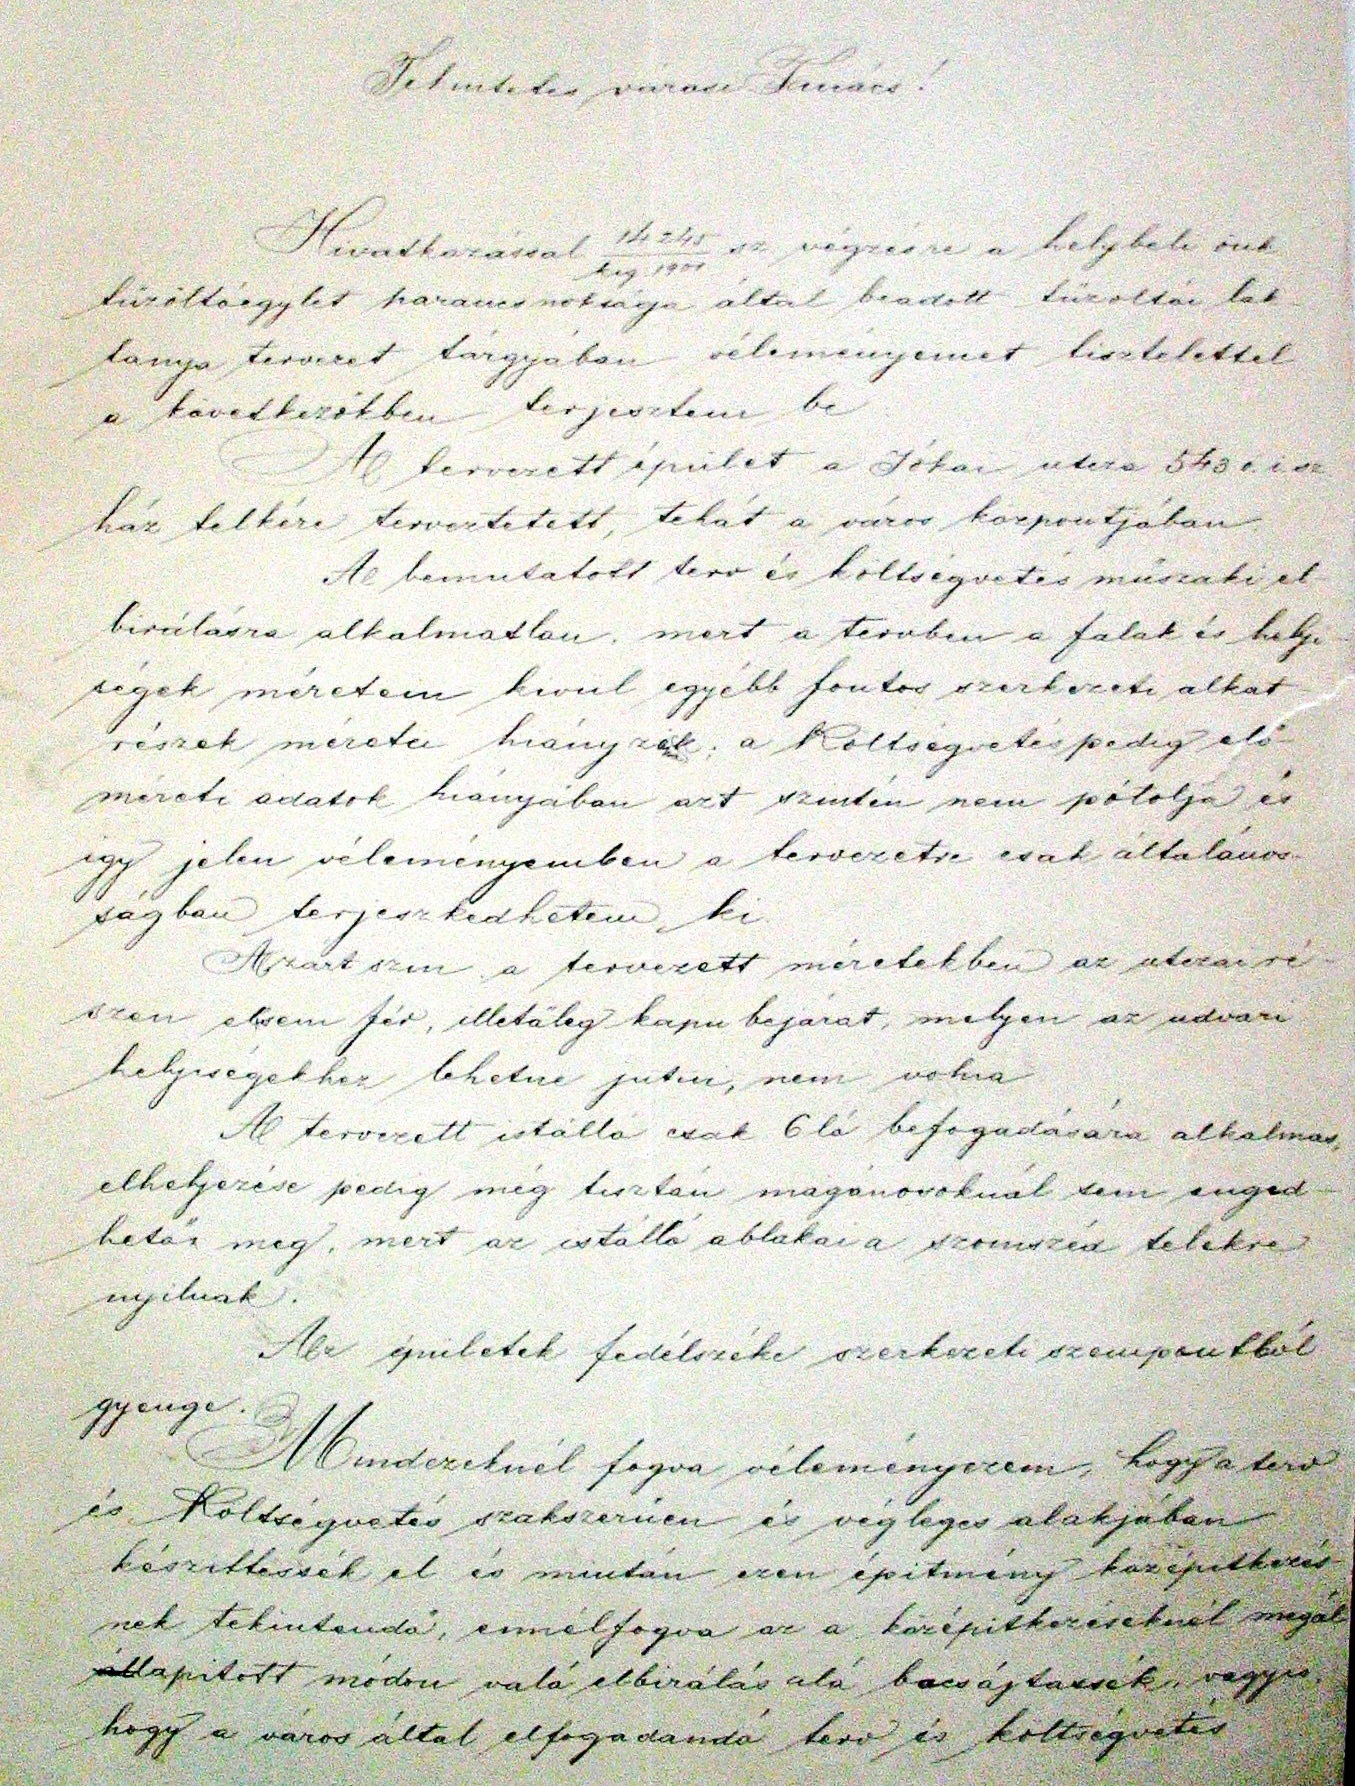 Tekintetes városi Tanács!
Hivatkozással 14245/kig 1901 sz végzésre a helybeli önk
tüzoltóegylet parancsnoksága által beadott tüzoltói lak-
tanya tervezet tárgyában véleményemet tisztelettel
a következőkben terjesztem be
A tervezett épület a Jókai utcza 543 ö. i sz
ház telkére terveztetett, tehát a város központjában
A bemutatott terv és költségvetés müszaki el-
birálásra alkalmatlan. mert a tervben a falak és helyi-
ségek méretein kivül egyébb fontos szerkezeti alkat-
részek méretei hiányzak; a Költségvetés pedig elő-
méreti adatok hiányában azt szintén nem pótolja és
igy jelen véleményemben a tervezetre csak általános-
ságban terjeszkedhetem ki.
A szín a tervezett méretekben az utczai ré-
szen elsem fér, illetőleg kapu bejárat, melyen az udvari
helyiségekhez lehetne jutni, nem volna
A tervezett istálló csak 6 ló befogadására alkalmas,
elhelyezése pedig még tisztán magánosoknál sem enged-
hető meg, mert az istálló ablakai a szomszéd telekre
nyilnak.
Az épületek fedélszéke szerkezeti szempontból
gyenge.
Mindezeknél fogva véleményezem, hogy a terv
és Költségvetés szakszerüen és végleges alakjában
készittessék el és miután ezen épitmény középitkezés-
nek tekintendő, ennélfogva az a középitkezéseknél megál-
lapitott módon való elbirálás alá bocsájtassék, vagyis,
hogy a város által elfogadandó terv és költségvetés